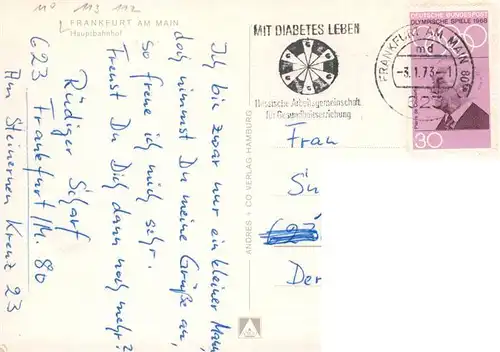 110 113 112
FRANKFURT AM MAIN
Hauptbahnhof
Ich bin zwar nur ein kleiner Mann,
doch nimmst Du meine Grüße an,
so freue ich mich sehr.
Freust Du Dich dann noch mehr?
Rüdiger Scharf
623 Frankfurt/M. 80
Am Steinernen Kreuz 23
ANDRES + CO VERLAG HAMBURG
MIT DIABETES LEBEN
Hessische Arbeitsgemeinschaft
für Gesundheitserziehung
FRANKFURT AM MAIN 80
md
-3.1.73-1
623
DEUTSCHE BUNDESPOST
OLYMPISCHE SPIELE 1968
30
Frau
Su
623
Der